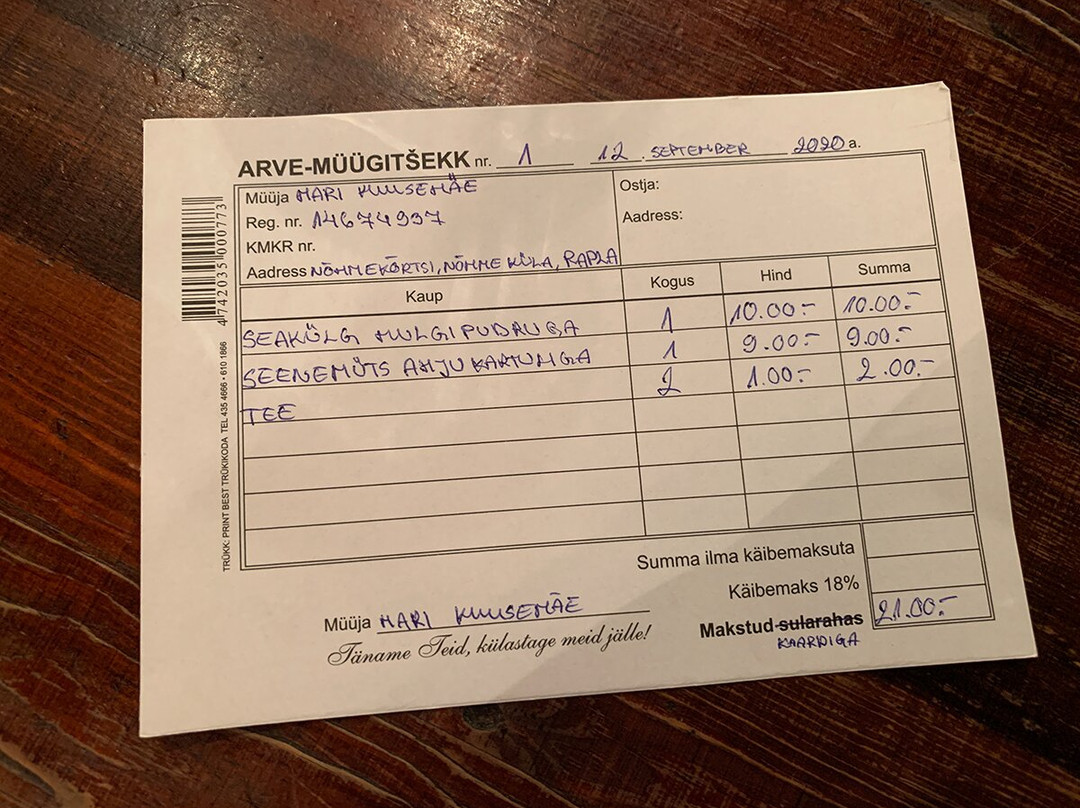 ARVE-MÜÜGITŠEKK nr. 1 12. SEPTEMBER 2020 a.
Müüja MARI KUUSEMÄE
Reg. nr. 14674937
KMKR nr.
Aadress NÕMMEKÕRTSI, NÕMME KÜLA, RAPLA
Ostja:
Aadress:
Kaup Kogus Hind Summa
SEAKÜLG MULGIPUDRUGA 1 10.00.- 10.00.-
SEENEMÜTS AHJUKARTULIGA 1 9.00.- 9.00.-
TEE 2 1.00.- 2.00.-
Summa ilma käibemaksuta
Käibemaks 18%
Makstud sularahas 21.00.-
KAARDIGA
Müüja MARI KUUSEMÄE
Täname Teid, külastage meid jälle!
4 742035 000773
TRÜKK: PRINT BEST TRÜKIKODA TEL 435 4666 • 610 1866